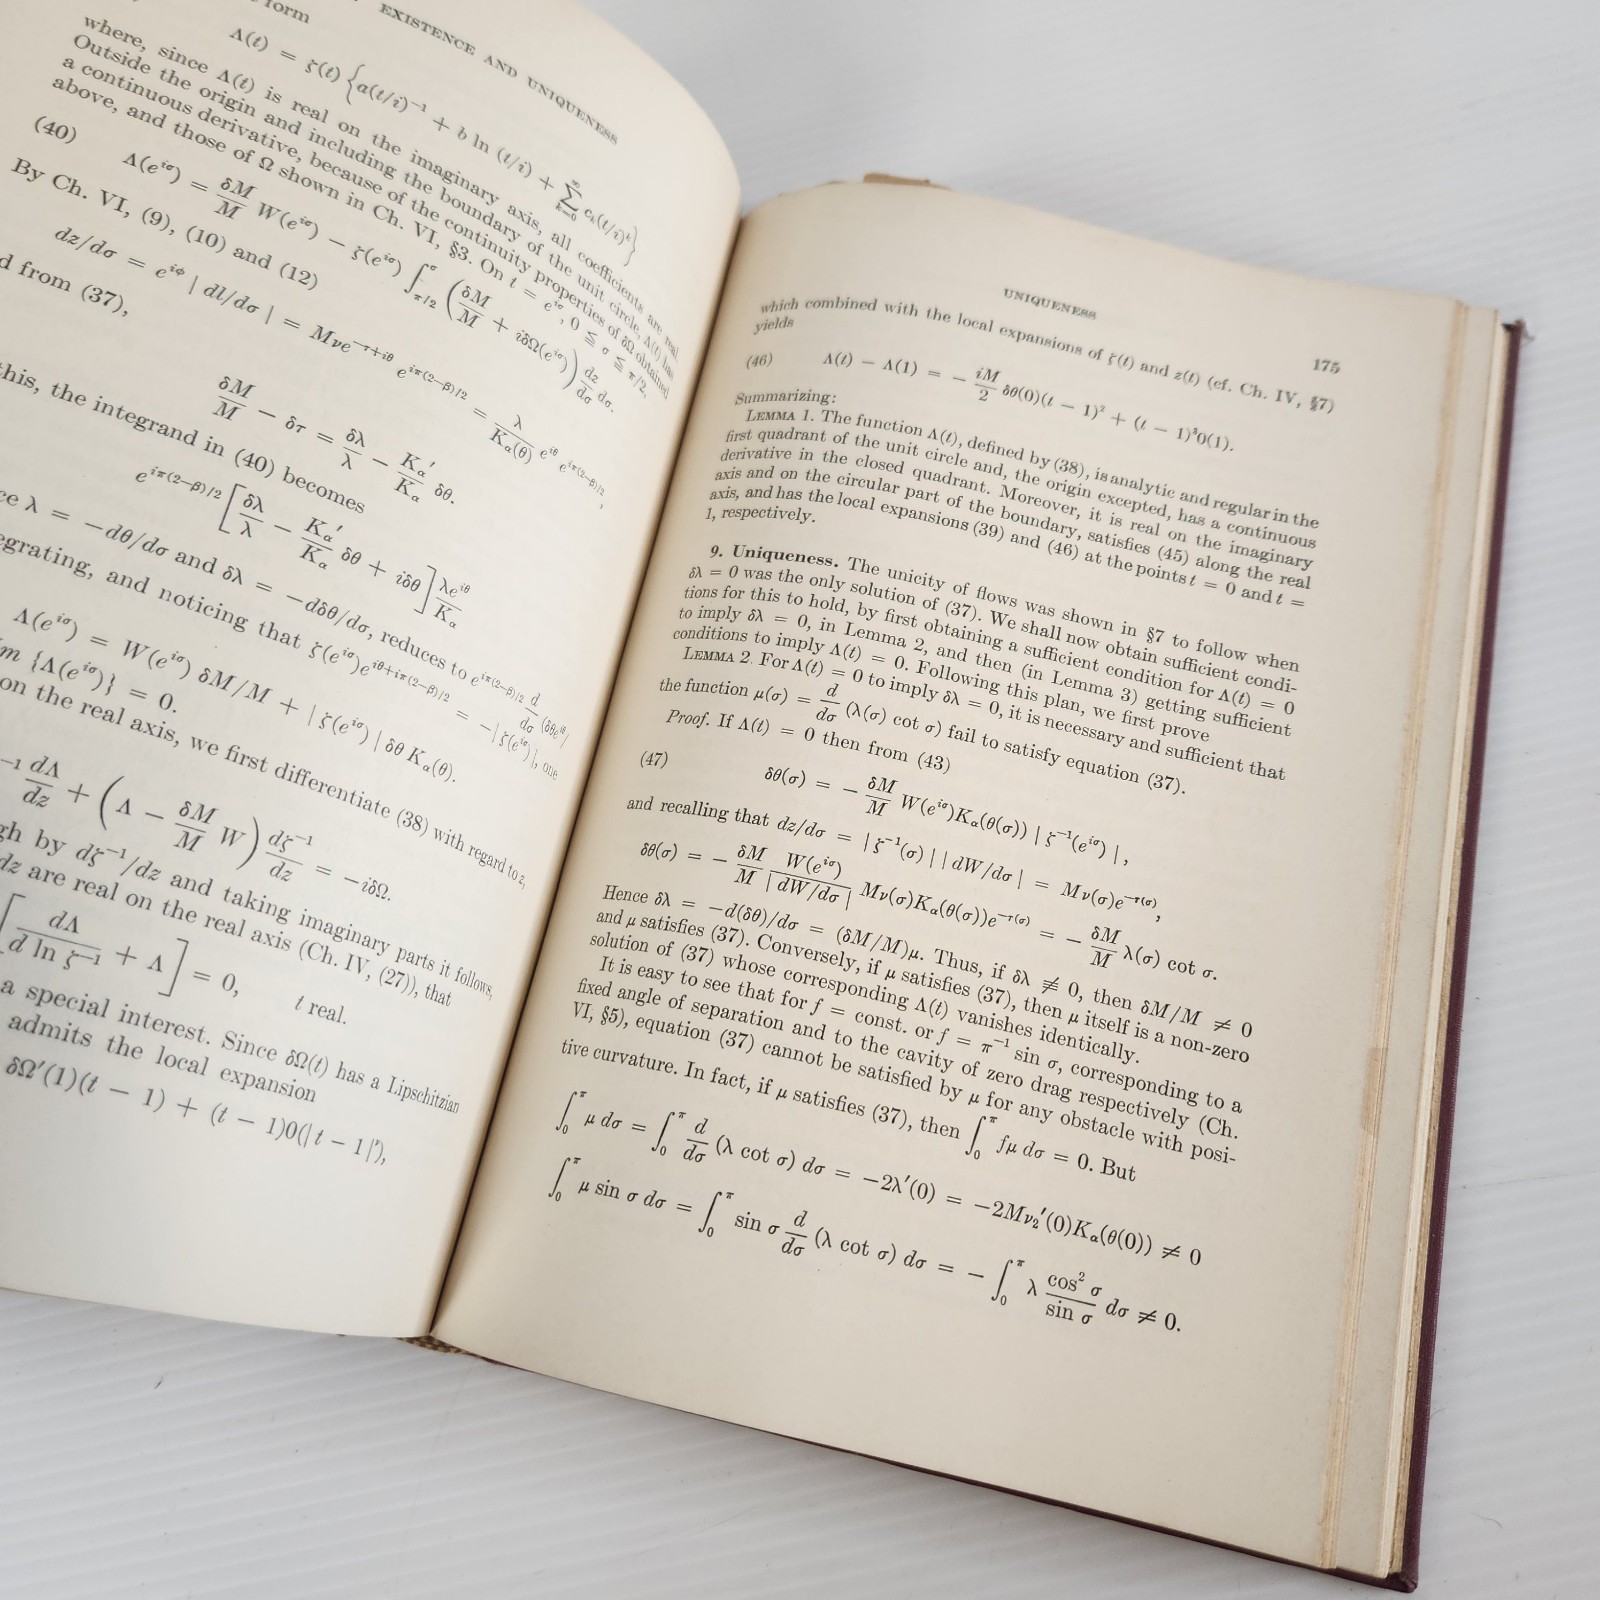 form
EXISTENCE AND UNIQUENESS
Λ(t) = ζ(t) {a(t/i)⁻¹ + b ln (t/i) + Σ_{k=0}^{∞} cₖ(t/i)ᵏ}
where, since Λ(t) is real on the imaginary axis, all coefficients are real.
Outside the origin and including the boundary of the unit circle, Λ(t) has
a continuous derivative, because of the continuity properties of δΩ obtained
above, and those of Ω shown in Ch. VI, §3. On t = e^{iσ}, 0 ≦ σ ≦ π/2,
(40) Λ(e^{iσ}) = δM/M W(e^{iσ}) − ζ(e^{iσ}) ∫_{π/2}^{σ} (δM/M + iδΩ(e^{iσ})) dz/dσ dσ.
By Ch. VI, (9), (10) and (12)
dz/dσ = e^{iφ} | dl/dσ | = Mνe^{−τ+iθ} e^{iπ(2−β)/2} = λ/K_α(θ) e^{iθ} e^{iπ(2−β)/2},
d from (37),
δM/M − δτ = δλ/λ − K_α′/K_α δθ.
this, the integrand in (40) becomes
e^{iπ(2−β)/2} [δλ/λ − K_α′/K_α δθ + iδθ] λe^{iθ}/K_α
ce λ = −dθ/dσ and δλ = −dδθ/dσ, reduces to e^{iπ(2−β)/2} d/dσ (δθe^{iθ}/
egrating, and noticing that ζ(e^{iσ})e^{iθ+iπ(2−β)/2} = −| ζ(e^{iσ}) |, one
Λ(e^{iσ}) = W(e^{iσ}) δM/M + | ζ(e^{iσ}) | δθ K_α(θ).
m {Λ(e^{iσ})} = 0.
on the real axis, we first differentiate (38) with regard to z,
⁻¹ dΛ/dz + (Λ − δM/M W) dζ⁻¹/dz = −iδΩ.
gh by dζ⁻¹/dz and taking imaginary parts it follows,
dz are real on the real axis (Ch. IV, (27)), that
[dΛ/d ln ζ⁻¹ + Λ] = 0, t real.
a special interest. Since δΩ(t) has a Lipschitzian
admits the local expansion
δΩ′(1)(t − 1) + (t − 1)0(| t − 1 |′),
UNIQUENESS
175
which combined with the local expansions of ζ(t) and z(t) (cf. Ch. IV, §7)
yields
(46) Λ(t) − Λ(1) = − iM/2 δθ(0)(t − 1)² + (t − 1)³0(1).
Summarizing:
LEMMA 1. The function Λ(t), defined by (38), is analytic and regular in the
first quadrant of the unit circle and, the origin excepted, has a continuous
derivative in the closed quadrant. Moreover, it is real on the imaginary
axis and on the circular part of the boundary, satisfies (45) along the real
axis, and has the local expansions (39) and (46) at the points t = 0 and t =
1, respectively.
9. Uniqueness. The unicity of flows was shown in §7 to follow when
δλ = 0 was the only solution of (37). We shall now obtain sufficient condi-
tions for this to hold, by first obtaining a sufficient condition for Λ(t) = 0
to imply δλ = 0, in Lemma 2, and then (in Lemma 3) getting sufficient
conditions to imply Λ(t) = 0. Following this plan, we first prove
LEMMA 2. For Λ(t) = 0 to imply δλ = 0, it is necessary and sufficient that
the function μ(σ) = d/dσ (λ(σ) cot σ) fail to satisfy equation (37).
Proof. If Λ(t) = 0 then from (43)
(47) δθ(σ) = − δM/M W(e^{iσ})K_α(θ(σ)) | ζ⁻¹(e^{iσ}) |,
and recalling that dz/dσ = | ζ⁻¹(σ) | | dW/dσ | = Mν(σ)e^{−τ(σ)},
δθ(σ) = − δM/M W(e^{iσ})/| dW/dσ | Mν(σ)K_α(θ(σ))e^{−τ(σ)} = − δM/M λ(σ) cot σ.
Hence δλ = −d(δθ)/dσ = (δM/M)μ. Thus, if δλ ≢ 0, then δM/M ≠ 0
and μ satisfies (37). Conversely, if μ satisfies (37), then μ itself is a non-zero
solution of (37) whose corresponding Λ(t) vanishes identically.
It is easy to see that for f = const. or f = π⁻¹ sin σ, corresponding to a
fixed angle of separation and to the cavity of zero drag respectively (Ch.
VI, §5), equation (37) cannot be satisfied by μ for any obstacle with posi-
tive curvature. In fact, if μ satisfies (37), then ∫₀^π fμ dσ = 0. But
∫₀^π μ dσ = ∫₀^π d/dσ (λ cot σ) dσ = −2λ′(0) = −2Mν₂′(0)K_α(θ(0)) ≠ 0
∫₀^π μ sin σ dσ = ∫₀^π sin σ d/dσ (λ cot σ) dσ = − ∫₀^π λ cos² σ/sin σ dσ ≠ 0.